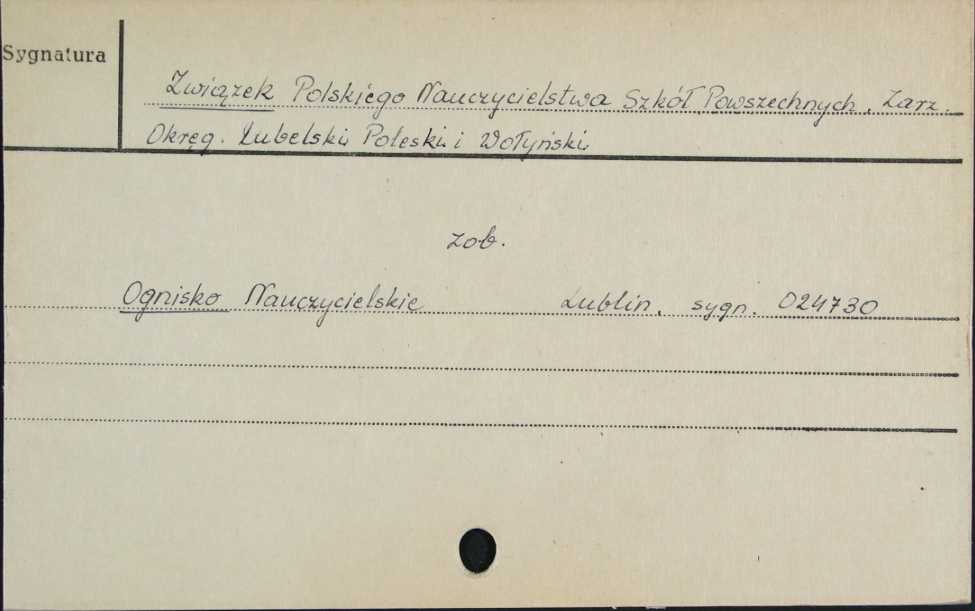 Sygnatura
Związek Polskiego Nauczycielstwa Szkół Powszechnych. Zarz.
Okręg. Lubelski, Poleski i Wołyński
zob.
Ognisko Nauczycielskie Lublin, sygn. 024730